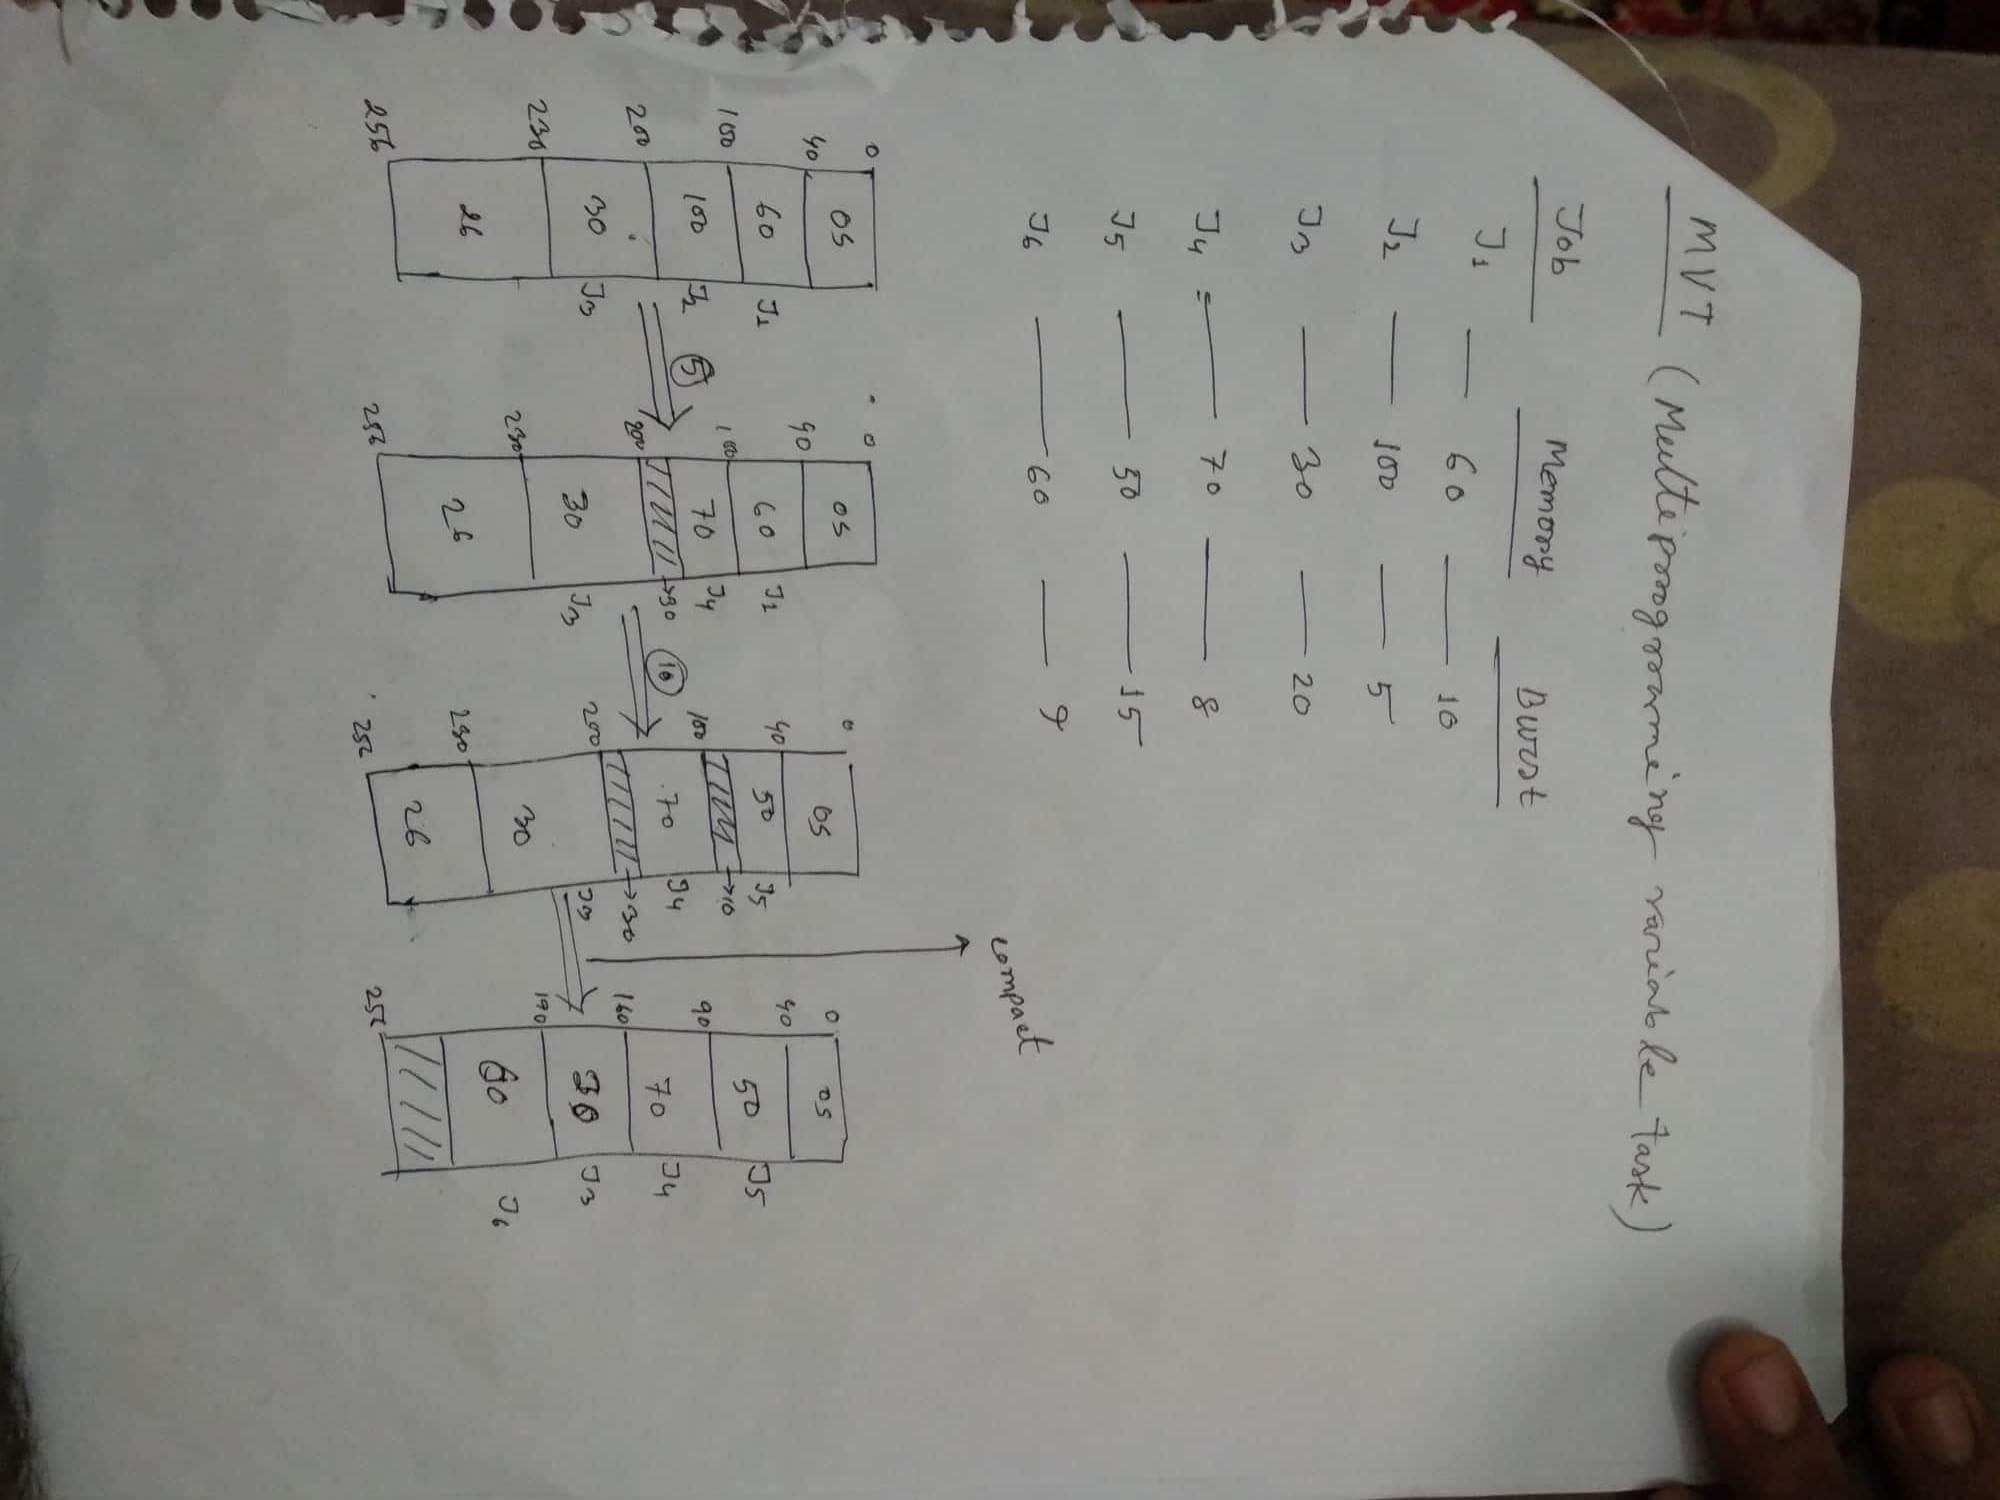 MVT (Multiprogramming variable task)
Job Memory Burst
J1 — 60 — 10
J2 — 100 — 5
J3 — 30 — 20
J4 = — 70 — 8
J5 — 50 — 15
J6 — 60 — 9
compact
0 OS
40
60 J1
100
100 J2
200
30 J3
230
26
256
5
0 OS
40
60 J1
100
70 J4
→30
200
30 J3
230
26
256
10
0 OS
40
50 J5
→10
100
70 J4
→30
200
30 J3
230
26
256
0 OS
40
50 J5
90
70 J4
160
30 J3
190
60 J6
256